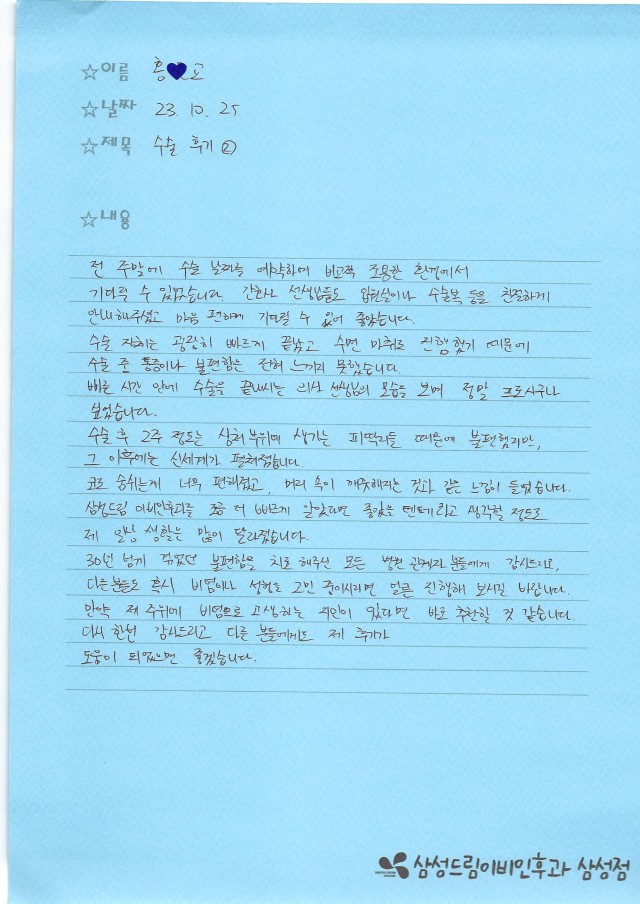 ☆이름 홍♥표
☆날짜 23. 10. 25
☆제목 수술 후기 ②
☆내용
전 주말에 수술 날짜를 예약하여 비교적 조용한 환경에서
기다릴 수 있었습니다. 간호사 선생님들도 입원실이나 수술복 등을 친절하게
안내해주셨고 마음 편하게 기다릴 수 있어 좋았습니다.
수술 자체는 굉장히 빠르게 끝났고 수면 마취로 진행했기 때문에
수술 중 통증이나 불편함은 전혀 느끼지 못했습니다.
빠른 시간 안에 수술을 끝내시는 의사 선생님의 모습을 보며 정말 프로시구나
싶었습니다.
수술 후 2주 정도는 상처 부위에 생기는 피딱지들 때문에 불편했지만,
그 이후에는 신세계가 펼쳐졌습니다.
코로 숨쉬는게 너무 편해졌고, 머리 속이 깨끗해지는 것과 같은 느낌이 들었습니다.
삼성드림 이비인후과를 조금 더 빠르게 알았다면 좋았을 텐데라고 생각할 정도로
제 일상 생활은 많이 달라졌습니다.
30년 넘게 겪었던 불편함을 치료 해주신 모든 병원 관계자 분들에게 감사드리고,
다른분들도 혹시 비염이나 성형을 고민 중이시라면 얼른 진행해 보시길 바랍니다.
만약 제 주위에 비염으로 고생하는 지인이 있다면 바로 추천할 것 같습니다.
다시 한번 감사드리고 다른 분들에게도 제 후기가
도움이 되었으면 좋겠습니다.
삼성드림이비인후과 삼성점